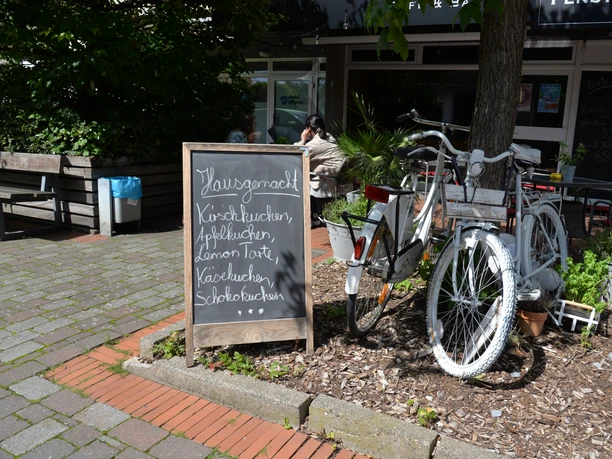 Hausgemacht
Kirschkuchen,
Apfelkuchen,
Lemon Tarte,
Käsekuchen,
Schokokuchen
...